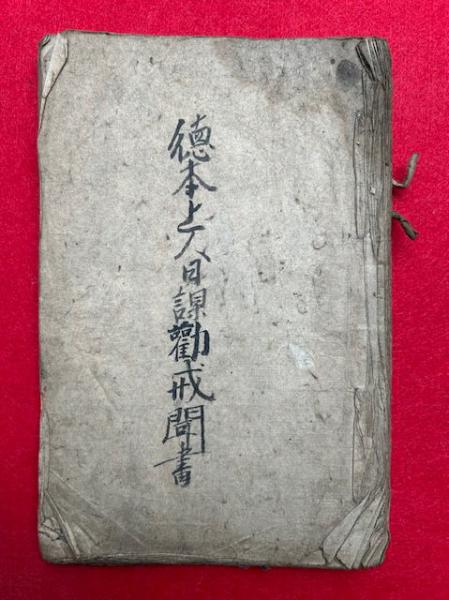 德本上人日課勸戒聞書